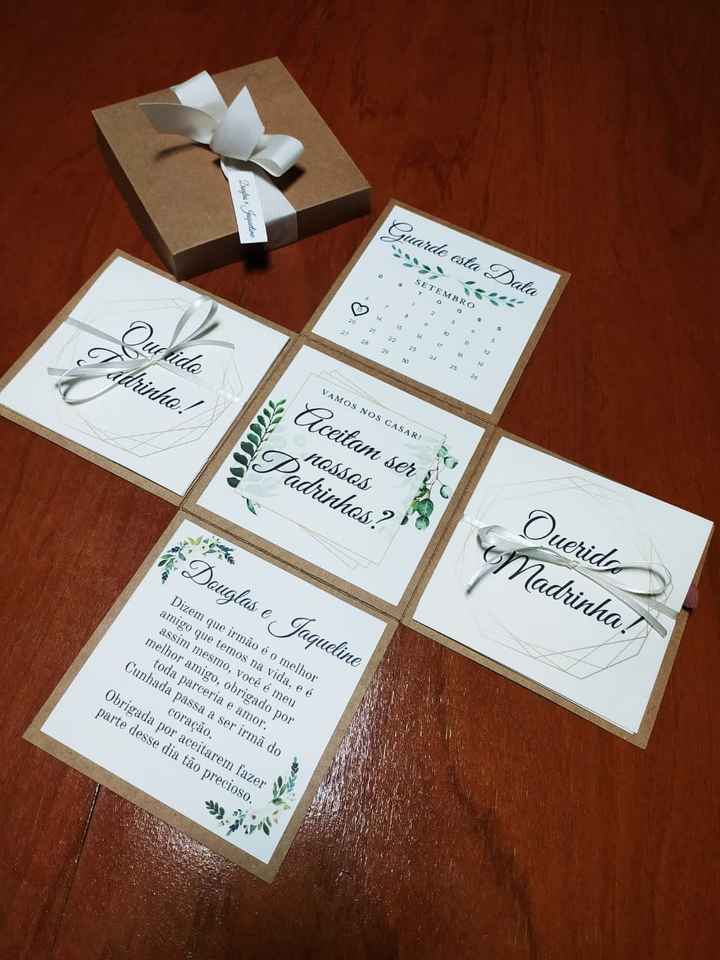 Douglas e Jaqueline
Guarde esta Data
SETEMBRO
D S T Q Q S S
1 2 3 4 5
6 7 8 9 10 11 12
13 14 15 16 17 18 19
20 21 22 23 24 25 26
27 28 29 30
Querido
Padrinho!
VAMOS NOS CASAR!
Aceitam ser
nossos
Padrinhos?
Querida
Madrinha!
Douglas e Jaqueline
Dizem que irmão é o melhor
amigo que temos na vida, e é
assim mesmo, você é meu
melhor amigo, obrigado por
toda parceria e amor.
Cunhada passa a ser irmã do
coração.
Obrigada por aceitarem fazer
parte desse dia tão precioso.